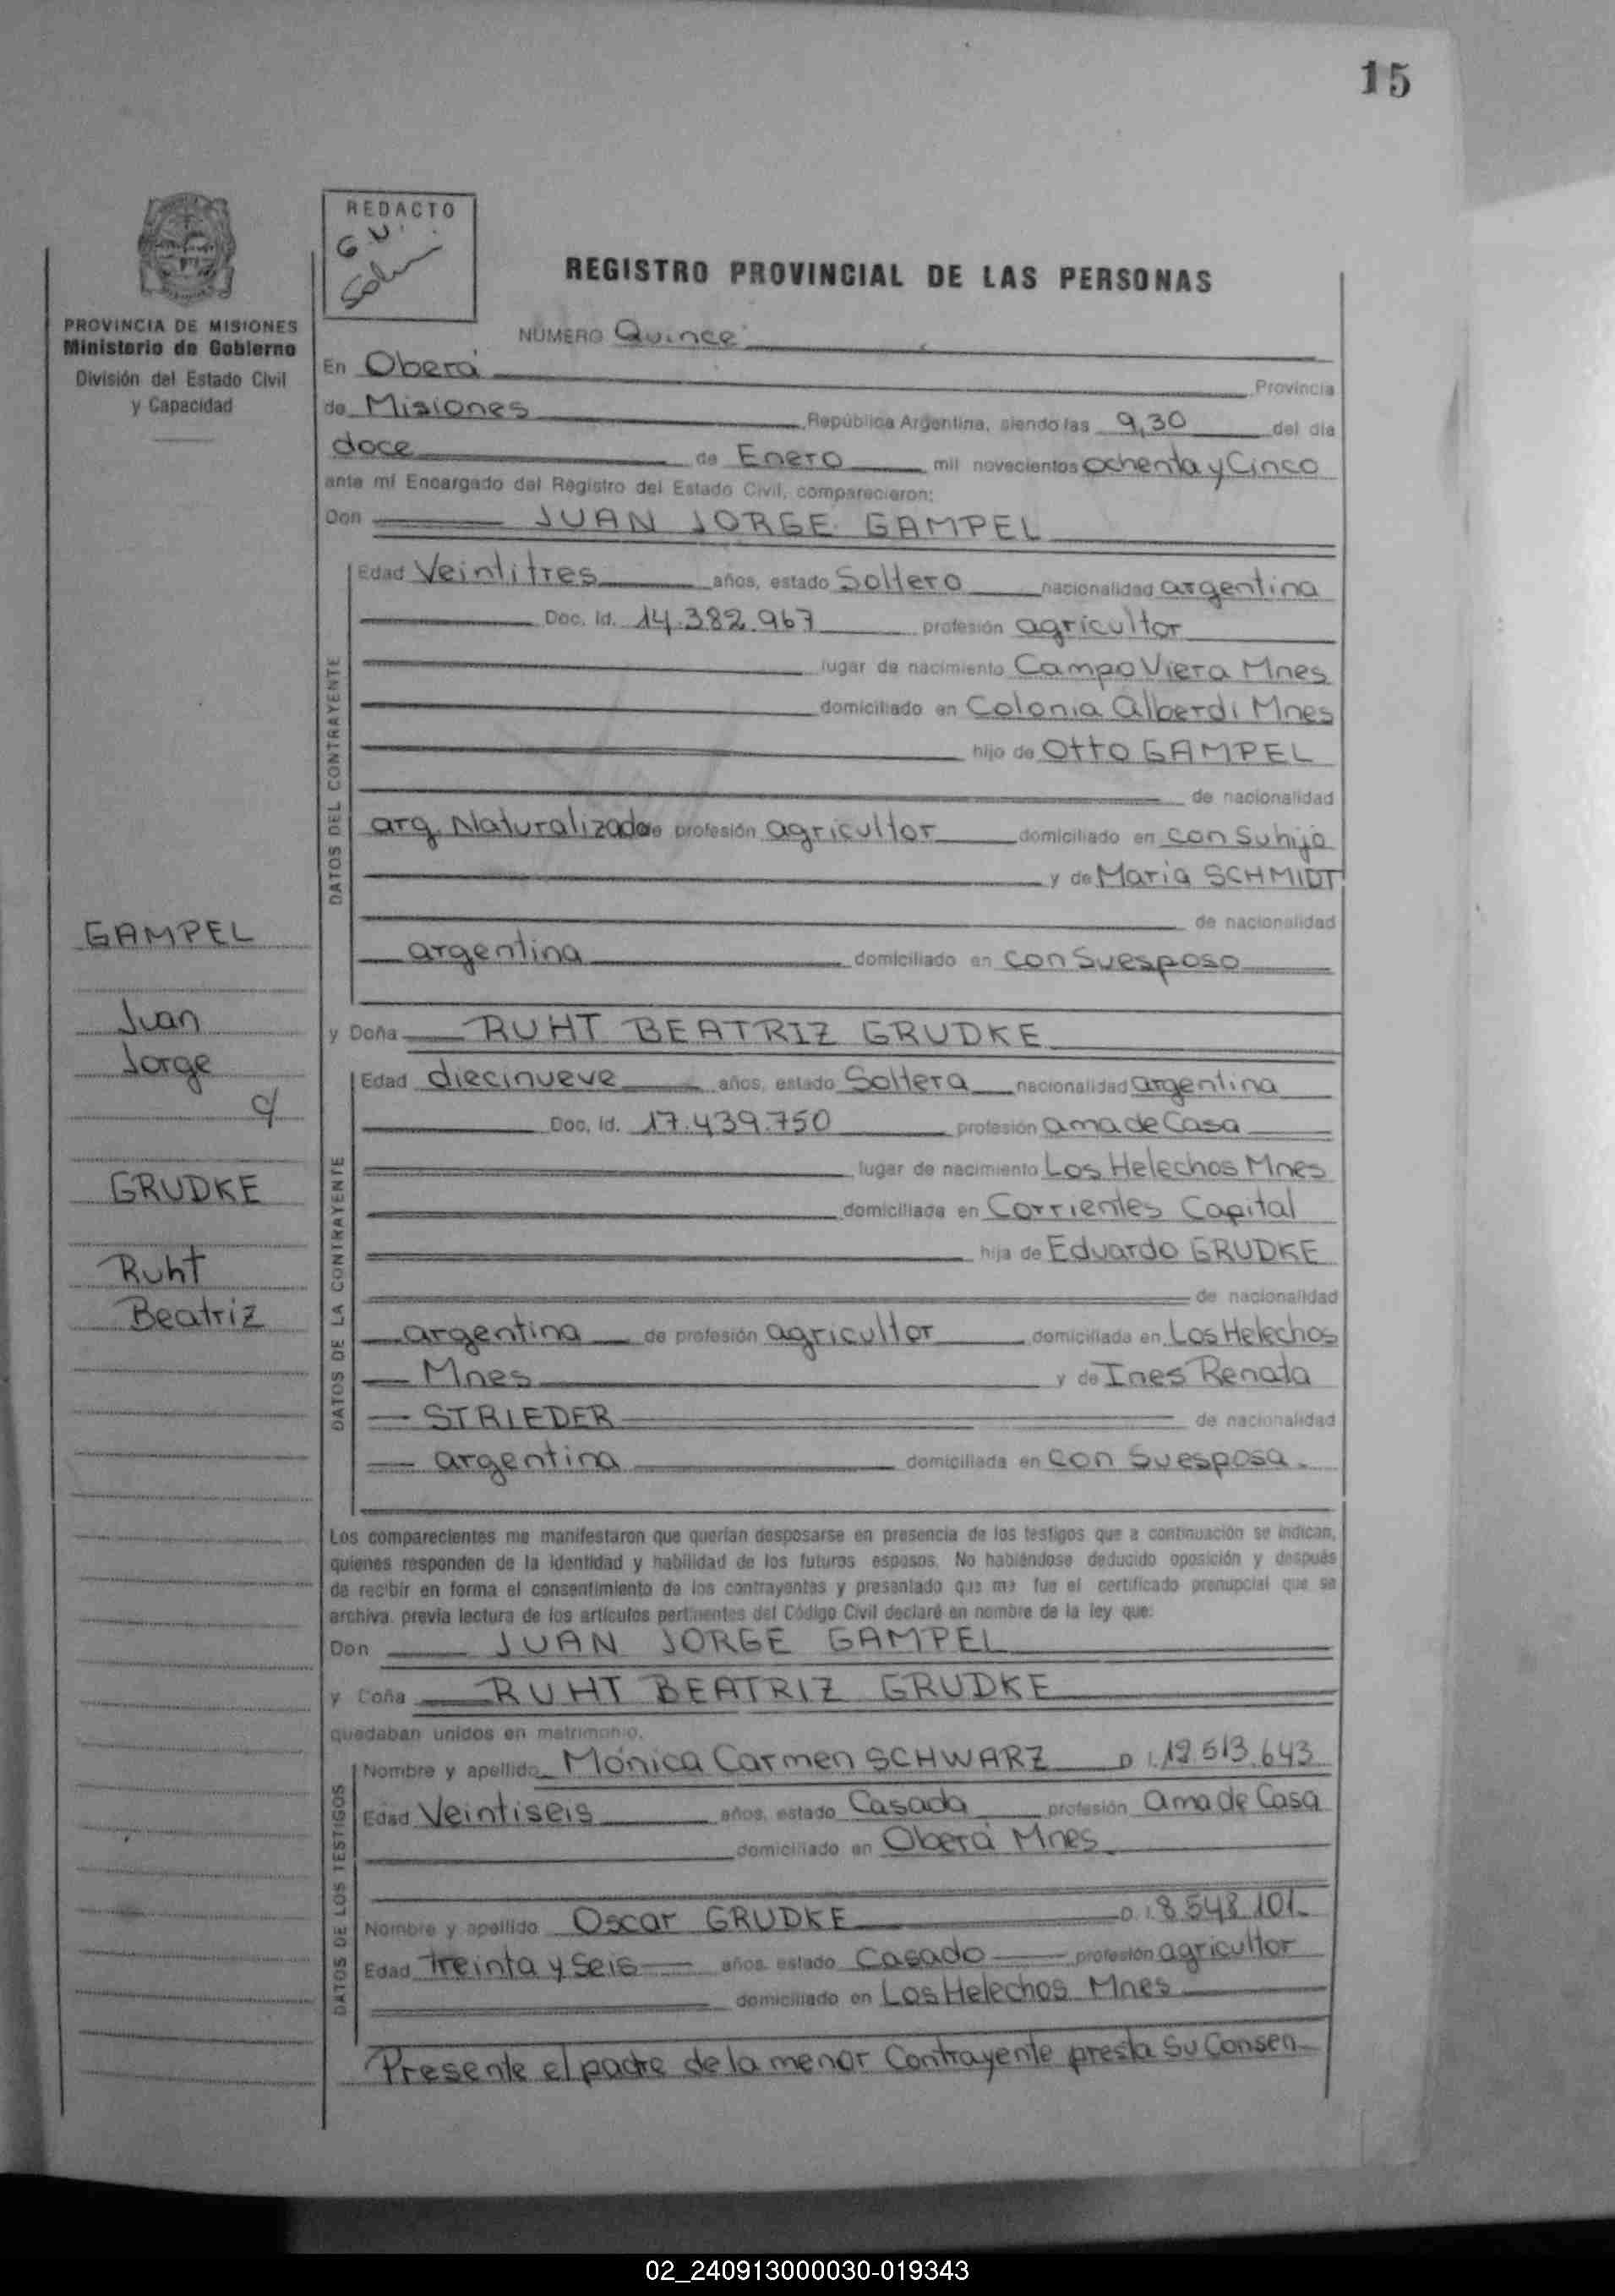 15
REDACTO
G.V.
REGISTRO PROVINCIAL DE LAS PERSONAS
PROVINCIA DE MISIONES
Ministerio de Gobierno
División del Estado Civil
y Capacidad
NUMERO Quince
En Oberá Provincia
de Misiones República Argentina, siendo las 9,30 del día
doce de Enero mil novecientos ochenta y Cinco
ante mí Encargado del Registro del Estado Civil, comparecieron:
Don JUAN JORGE GAMPEL
DATOS DEL CONTRAYENTE
Edad Veintitres años, estado Soltero nacionalidad argentina
Doc. Id. 14.382.967 profesión agricultor
lugar de nacimiento Campo Viera Mnes
domiciliado en Colonia Alberdi Mnes
hijo de Otto GAMPEL
de nacionalidad
arg. Naturalizado de profesión agricultor domiciliado en con su hijo
y de Maria SCHMIDT
de nacionalidad
argentina domiciliado en con Su esposo
y Doña RUHT BEATRIZ GRUDKE
DATOS DE LA CONTRAYENTE
Edad diecinueve años, estado Soltera nacionalidad argentina
Doc. Id. 17.439.750 profesión ama de Casa
lugar de nacimiento Los Helechos Mnes
domiciliada en Corrientes Capital
hija de Eduardo GRUDKE
de nacionalidad
argentina de profesión agricultor domiciliada en Los Helechos
Mnes y de Ines Renata
STRIEDER de nacionalidad
argentina domiciliada en con Su esposa.
GAMPEL
Juan
Jorge
c/
GRUDKE
Ruht
Beatriz
Los comparecientes me manifestaron que querían desposarse en presencia de los testigos que a continuación se indican,
quienes responden de la identidad y habilidad de los futuros esposos. No habiéndose deducido oposición y después
de recibir en forma el consentimiento de los contrayentes y presentado que me fue el certificado prenupcial que se
archiva, previa lectura de los artículos pertinentes del Código Civil declaré en nombre de la ley que:
Don JUAN JORGE GAMPEL
y Doña RUHT BEATRIZ GRUDKE
quedaban unidos en matrimonio.
DATOS DE LOS TESTIGOS
Nombre y apellido Mónica Carmen SCHWARZ D.I. 12.513.643
Edad Veintiseis años, estado Casada profesión Ama de Casa
domiciliado en Oberá Mnes
Nombre y apellido Oscar GRUDKE D.I. 8.548.101
Edad treinta y Seis años, estado Casado profesión agricultor
domiciliado en Los Helechos Mnes
Presente el padre de la menor Contrayente presta Su Consen-
02_240913000030-019343